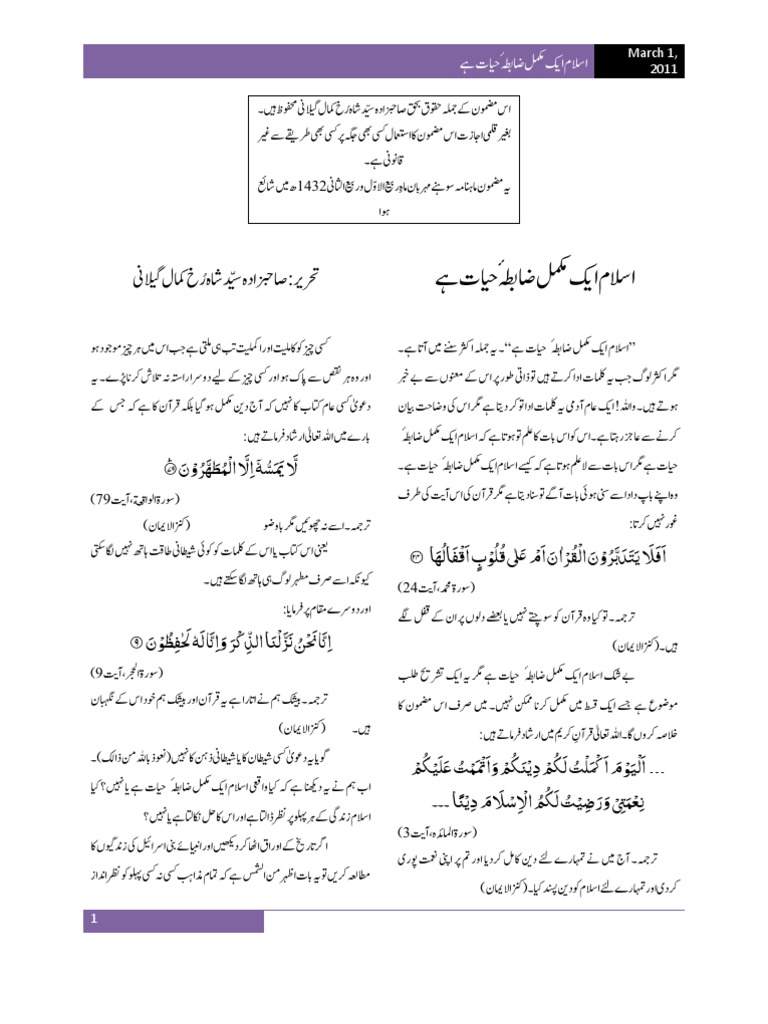 اسلام ایک مکمل ضابطہٴ حیات ہے
March 1,
2011
اس مضمون کے جملہ حقوق بحق صاحبزادہ سیّد شاہ رُخ کمال گیلانی محفوظ ہیں۔
بغیر قلمی اجازت اس مضمون کا استعمال کسی بھی جگہ پر کسی بھی طریقے سے غیر
قانونی ہے۔
یہ مضمون ماہنامہ سوہنے مہربان ماہِ ربیع الاوّل و ربیع الثانی 1432ھ میں شائع
ہوا
اسلام ایک مکمل ضابطہٴ حیات ہے
تحریر: صاحبزادہ سیّد شاہ رُخ کمال گیلانی
”اسلام ایک مکمل ضابطہٴ حیات ہے“۔ یہ جملہ اکثر سننے میں آتا ہے۔
مگر اکثر لوگ جب یہ کلمات ادا کرتے ہیں تو ذاتی طور پر اس کے معنوں سے بے خبر
ہوتے ہیں۔ واللہ! ایک عام آدمی یہ کلمات ادا تو کر دیتا ہے مگر اس کی وضاحت بیان
کرنے سے عاجز رہتا ہے۔ اس کو اس بات کا علم تو ہوتا ہے کہ اسلام ایک مکمل ضابطہٴ
حیات ہے مگر اس بات سے لا علم ہوتا ہے کہ کیسے اسلام ایک مکمل ضابطہٴ حیات ہے۔
وہ اپنے باپ دادا سے سنی ہوئی بات آگے تو سنا دیتا ہے مگر قرآن کی اس آیت کی طرف
غور نہیں کرتا:
اَفَلَا یَتَدَبَّرُوْنَ الْقُرْاٰنَ اَمْ عَلٰی قُلُوْبٍ اَقْفَالُهَا ﴿۲۴﴾
(سورۃ محمد، آیت 24)
ترجمہ۔ تو کیا وہ قرآن کو سوچتے نہیں یا بعضے دلوں پر ان کے قفل لگے
ہیں۔ (کنز الایمان)
بے شک اسلام ایک مکمل ضابطہٴ حیات ہے مگر یہ ایک تشریح طلب
موضوع ہے جسے ایک قسط میں مکمل کرنا ممکن نہیں۔ میں صرف اس مضمون کا
خلاصہ کروں گا۔ اللہ تعالیٰ قرآنِ کریم میں ارشاد فرماتے ہیں:
... اَلْیَوْمَ اَکْمَلْتُ لَکُمْ دِیْنَکُمْ وَاَتْمَمْتُ عَلَیْکُمْ
نِعْمَتِیْ وَرَضِیْتُ لَکُمُ الْاِسْلَامَ دِیْنًا ...
(سورۃ المائدہ، آیت 3)
ترجمہ۔ آج میں نے تمہارے لئے دین کامل کر دیا اور تم پر اپنی نعمت پوری
کر دی اور تمہارے لئے اسلام کو دین پسند کیا۔ (کنز الایمان)
کسی چیز کو کاملیت اور اکملیت تب ہی ملتی ہے جب اس میں ہر چیز موجود ہو
اور وہ ہر نقص سے پاک ہو اور کسی چیز کے لیے دوسرا راستہ نہ تلاش کرنا پڑے۔ یہ
دعویٰ کسی عام کتاب کا نہیں کہ آج دین مکمل ہو گیا بلکہ قرآن کا ہے کہ جس کے
بارے میں اللہ تعالیٰ ارشاد فرماتے ہیں:
لَّا یَمَسُّهٗۤ اِلَّا الْمُطَهَّرُوْنَ ﴿۷۹﴾
(سورۃ الواقعۃ، آیت 79)
ترجمہ۔ اسے نہ چھوئیں مگر باوضو (کنز الایمان)
یعنی اس کتاب یا اس کے کلمات کو کوئی شیطانی طاقت ہاتھ نہیں لگا سکتی
کیونکہ اسے صرف مطہر لوگ ہی ہاتھ لگا سکتے ہیں۔
اور دوسرے مقام پر فرمایا:
اِنَّا نَحْنُ نَزَّلْنَا الذِّکْرَ وَاِنَّا لَهٗ لَحٰفِظُوْنَ ﴿۹﴾
(سورۃ الحجر، آیت 9)
ترجمہ۔ بیشک ہم نے اتارا ہے یہ قرآن اور بیشک ہم خود اس کے نگہبان
ہیں۔ (کنز الایمان)
گویا یہ دعویٰ کسی شیطان کا یا شیطانی ذہن کا نہیں (نعوذ باللہ من ذالک)۔
اب ہم نے یہ دیکھنا ہے کہ کیا واقعی اسلام ایک مکمل ضابطہٴ حیات ہے یا نہیں؟ کیا
اسلام زندگی کے ہر پہلو پر نظر ڈالتا ہے اور اس کا حل نکالتا ہے یا نہیں؟
اگر تاریخ کے اوراق اٹھا کر دیکھیں اور انبیائے بنی اسرائیل کی زندگیوں کا
مطالعہ کریں تو یہ بات اظہر من الشمس ہے کہ تمام مذاہب کسی نہ کسی پہلو کو نظر انداز
1